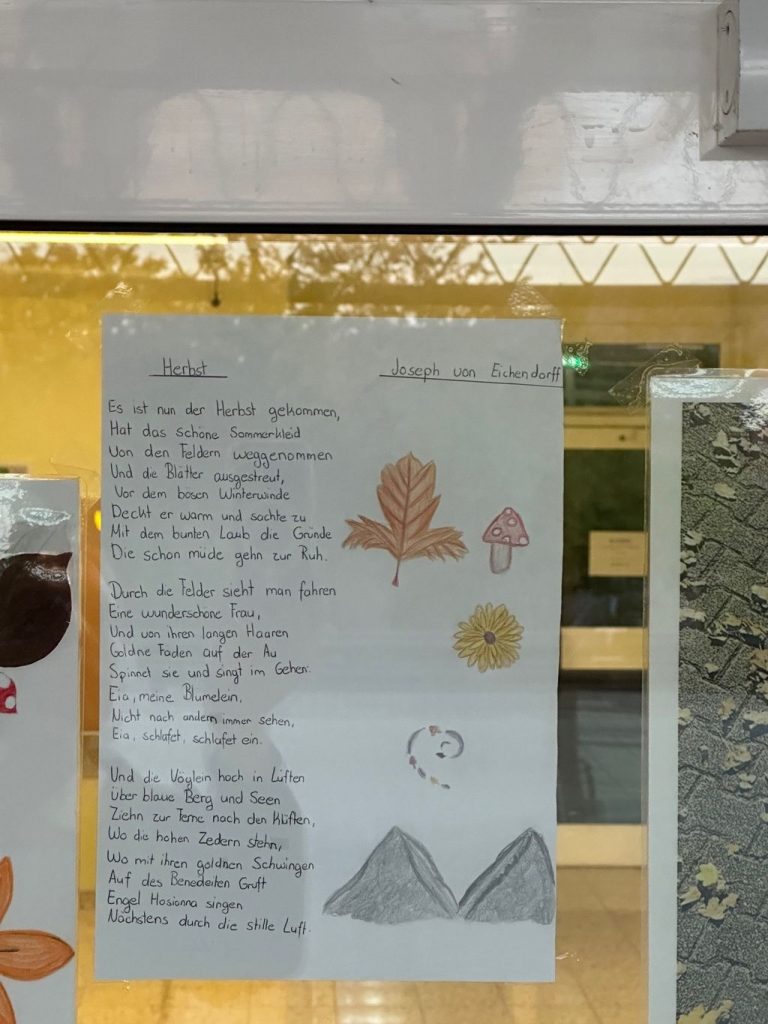 Herbst
Joseph von Eichendorff
Es ist nun der Herbst gekommen,
Hat das schöne Sommerkleid
Von den Feldern weggenommen
Und die Blätter ausgestreut,
Vor dem bösen Winterwinde
Deckt er warm und sachte zu
Mit dem bunten Laub die Gründe
Die schon müde gehn zur Ruh.
Durch die Felder sieht man fahren
Eine wunderschöne Frau,
Und von ihren langen Haaren
Goldne Faden auf der Au
Spinnet sie und singt im Gehen:
Eia, meine Blumelein,
Nicht nach andern immer sehen,
Eia, schlafet, schlafet ein.
Und die Vöglein hoch in Lüften
Über blaue Berg und Seen
Ziehn zur Ferne nach den Klüften,
Wo die hohen Zedern stehn,
Wo mit ihren goldnen Schwingen
Auf des Benedeiten Gruft
Engel Hosianna singen
Nächstens durch die stille Luft.